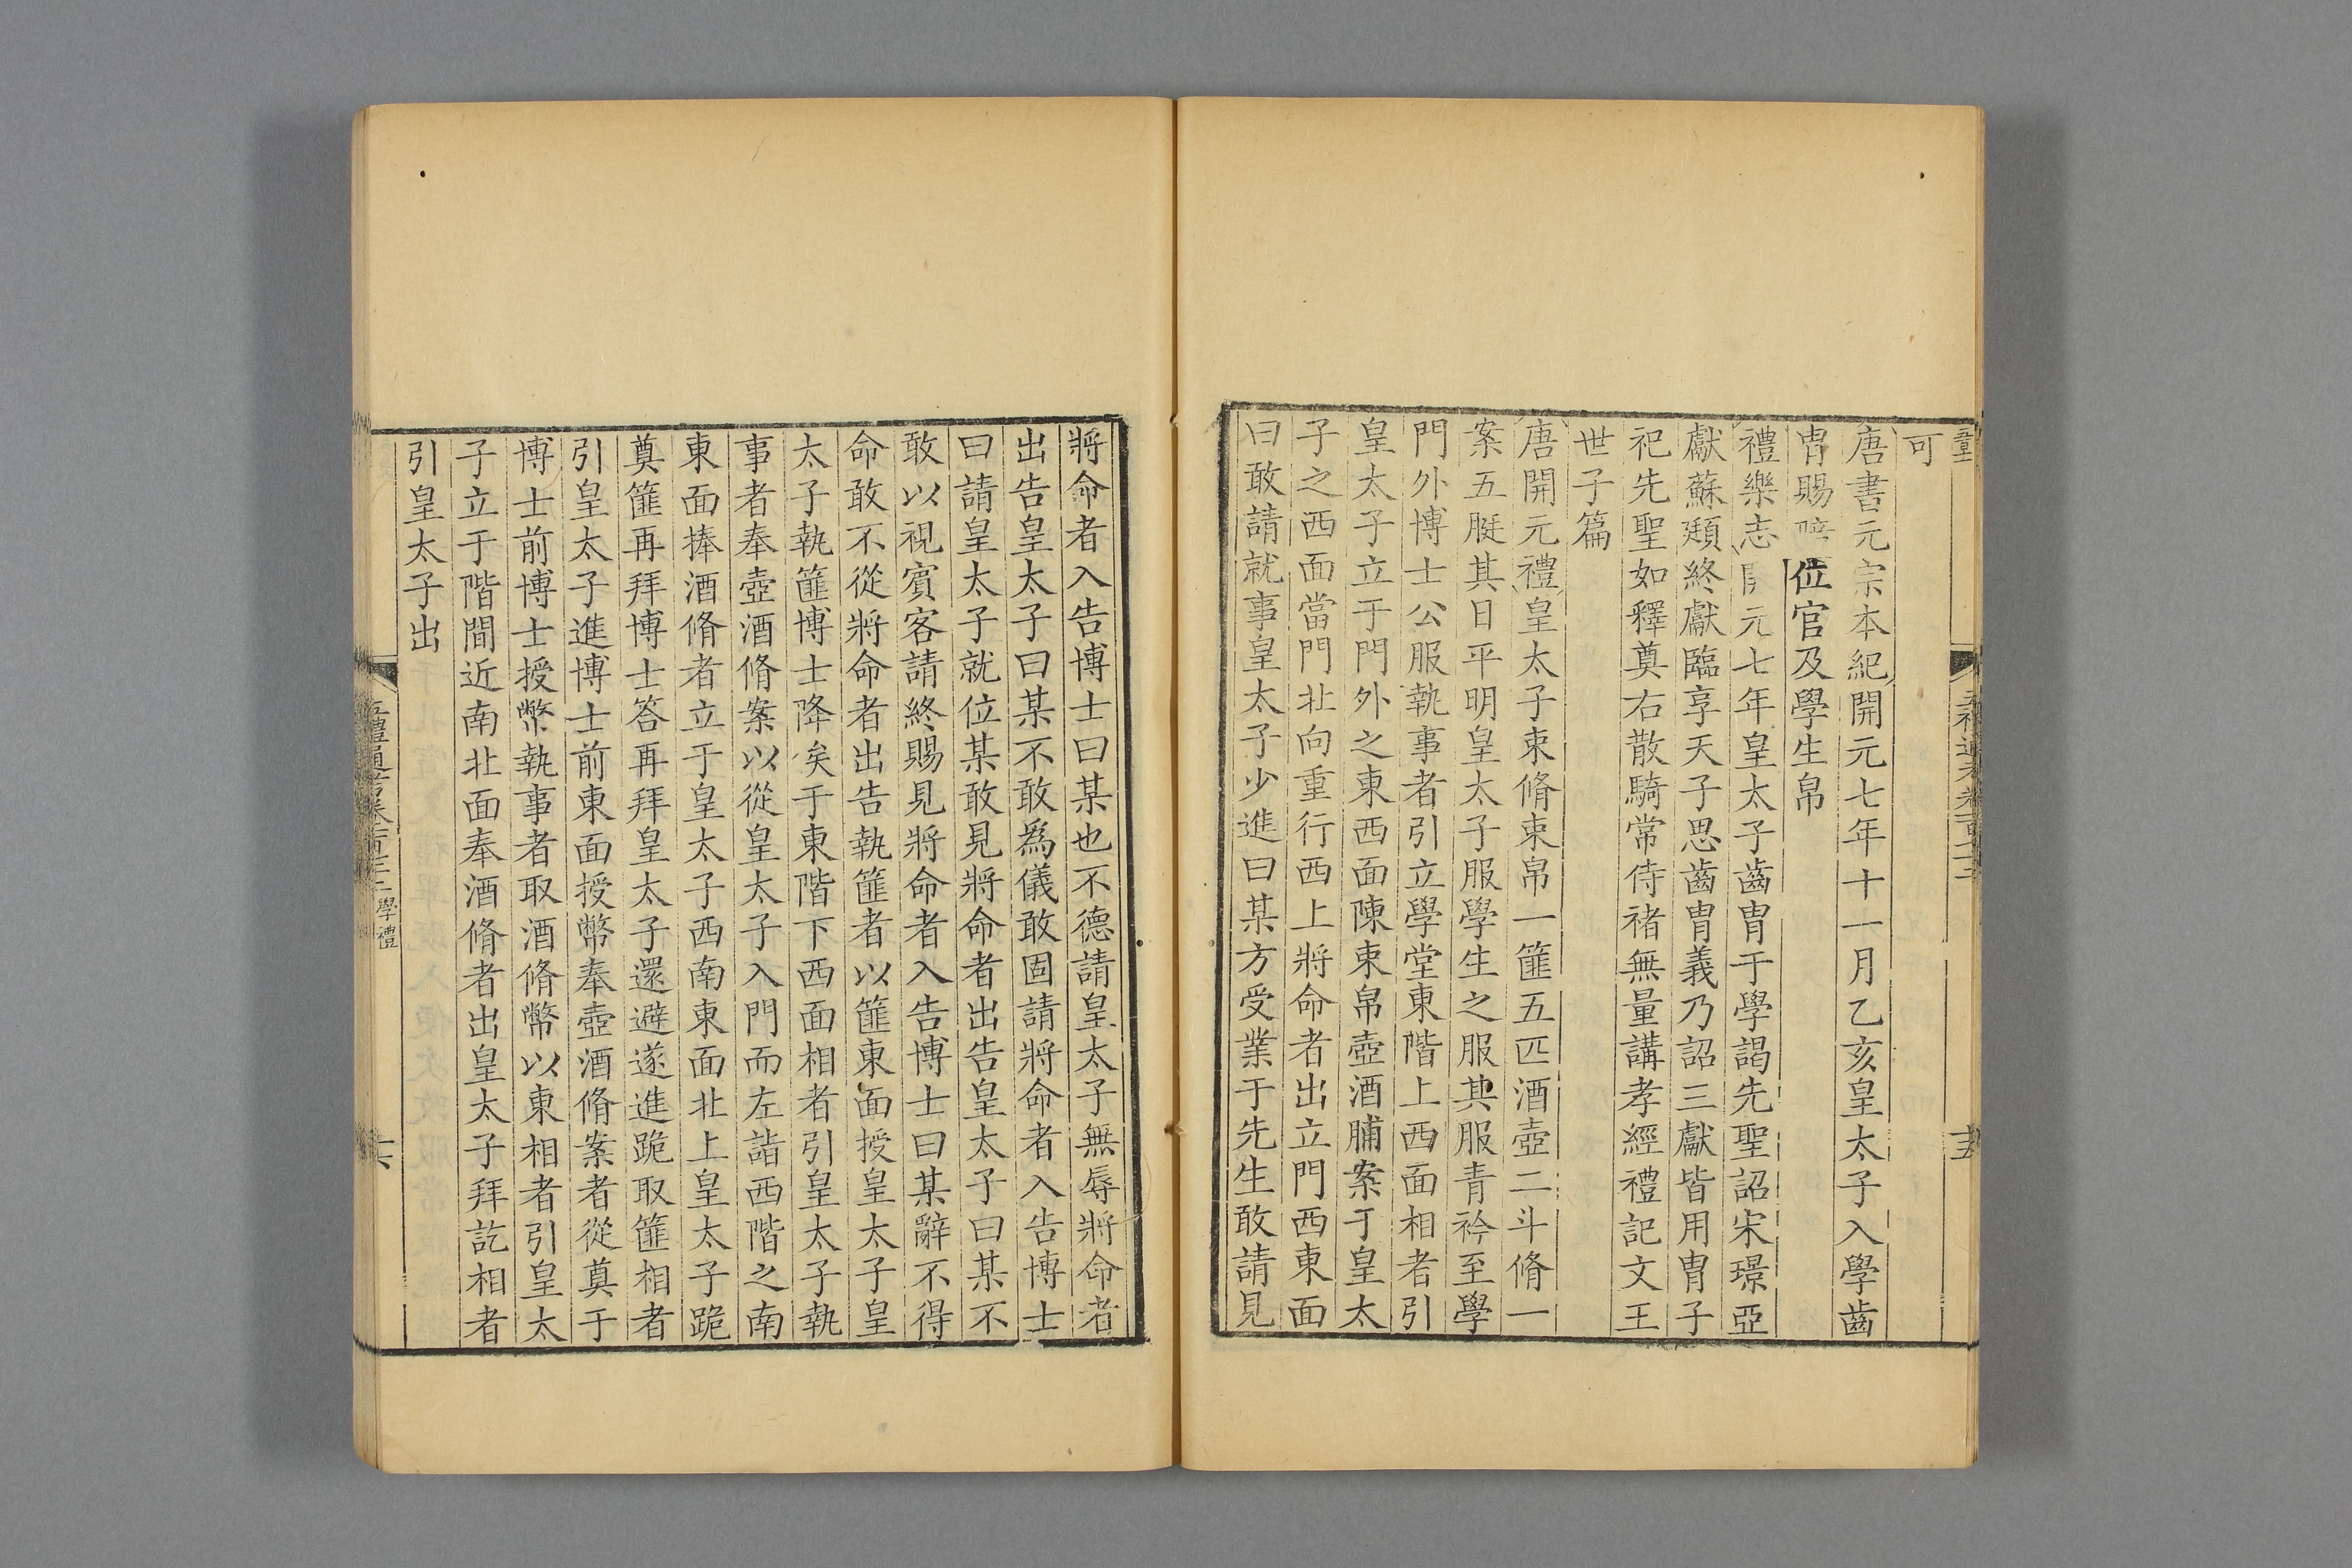 可
唐書元宗本紀開元七年十一月乙亥皇太子入學齒
冑賜陪位官及學生帛
禮樂志開元七年皇太子齒冑于學謁先聖詔宋璟亞
獻蘇頲終獻臨享天子思齒冑義乃詔三獻皆用冑子
祀先聖如釋奠右散騎常侍褚無量講孝經禮記文王
世子篇
唐開元禮皇太子束脩束帛一篚五匹酒壺二斗脩一
案五脡其日平明皇太子服學生之服其服青衿至學
門外博士公服執事者引立學堂東階上西面相者引
皇太子立于門外之東西面陳束帛壺酒脯案于皇太
子之西面當門北向重行西上將命者出立門西東面
曰敢請就事皇太子少進曰某方受業于先生敢請見
將命者入告博士曰某也不德請皇太子無辱將命者
出告皇太子曰某不敢為儀敢固請將命者入告博士
曰請皇太子就位某敢見將命者出告皇太子曰某不
敢以視賓客請終賜見將命者入告博士曰某辭不得
命敢不從將命者出告執篚者以篚東面授皇太子皇
太子執篚博士降矣于東階下西面相者引皇太子執
事者奉壺酒脩案以從皇太子入門而左詣西階之南
東面捧酒脩者立于皇太子西南東面北上皇太子跪
奠篚再拜博士答再拜皇太子還避遂進跪取篚相者
引皇太子進博士前東面授幣奉壺酒脩案者從奠于
博士前博士授幣執事者取酒脩幣以東相者引皇太
子立于階間近南北面奉酒脩者出皇太子拜訖相者
引皇太子出
五禮通考卷一百七十二 學禮